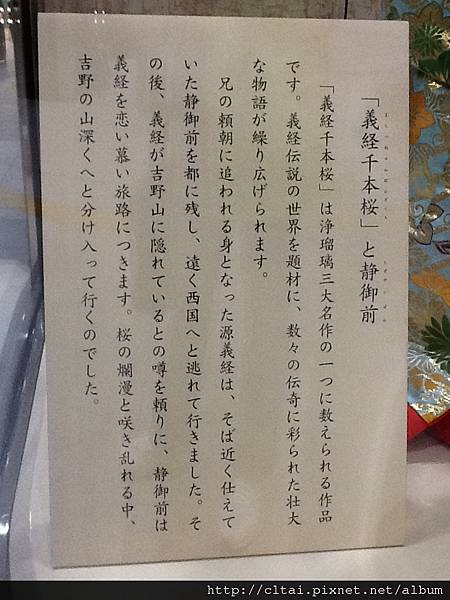 「義経千本桜」と静御前
「義経千本桜」は浄瑠璃三大名作の一つに数えられる作品
です。義経伝説の世界を題材に、数々の伝奇に彩られた壮大
な物語が繰り広げられます。
兄の頼朝に追われる身となった源義経は、そば近く仕えて
いた静御前を都に残し、遠く西国へと逃れて行きました。そ
の後、義経が吉野山に隠れているとの噂を頼りに、静御前は
義経を恋い慕い旅路につきます。桜の爛漫と咲き乱れる中、
吉野の山深くへと分け入って行くのでした。
http://cltai.pixnet.net/album